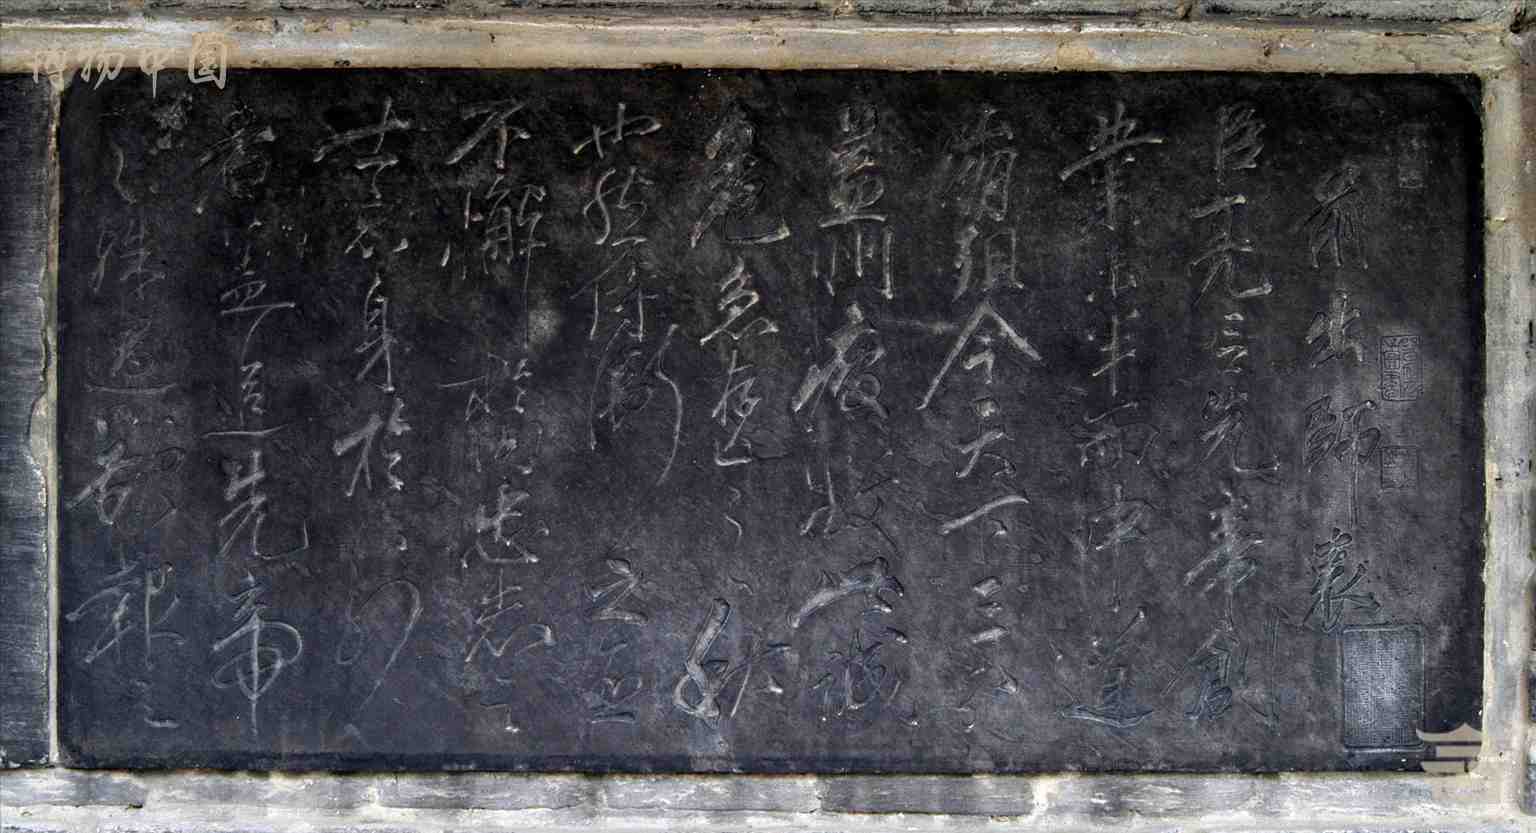 博物中国
前出師表
臣亮言先帝創
業未半而中道
崩殂今天下三分
益州疲敝此誠
危急存亡之秋
也然侍衛之臣
不懈於內忠志之
士忘身於外
者蓋追先帝
之殊遇欲報之